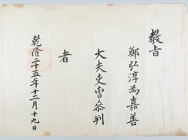 敎旨
鄭弘淳為嘉善
大夫吏曹叅判
者
乾隆二十五年十二月十九日